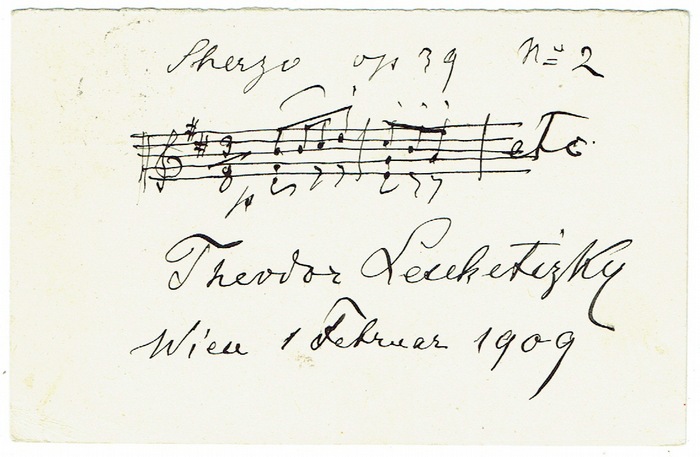 Sherzo op 39 No 2
3
8
p
etc.
Theodor Leschetizky
Wien 1 Februar 1909